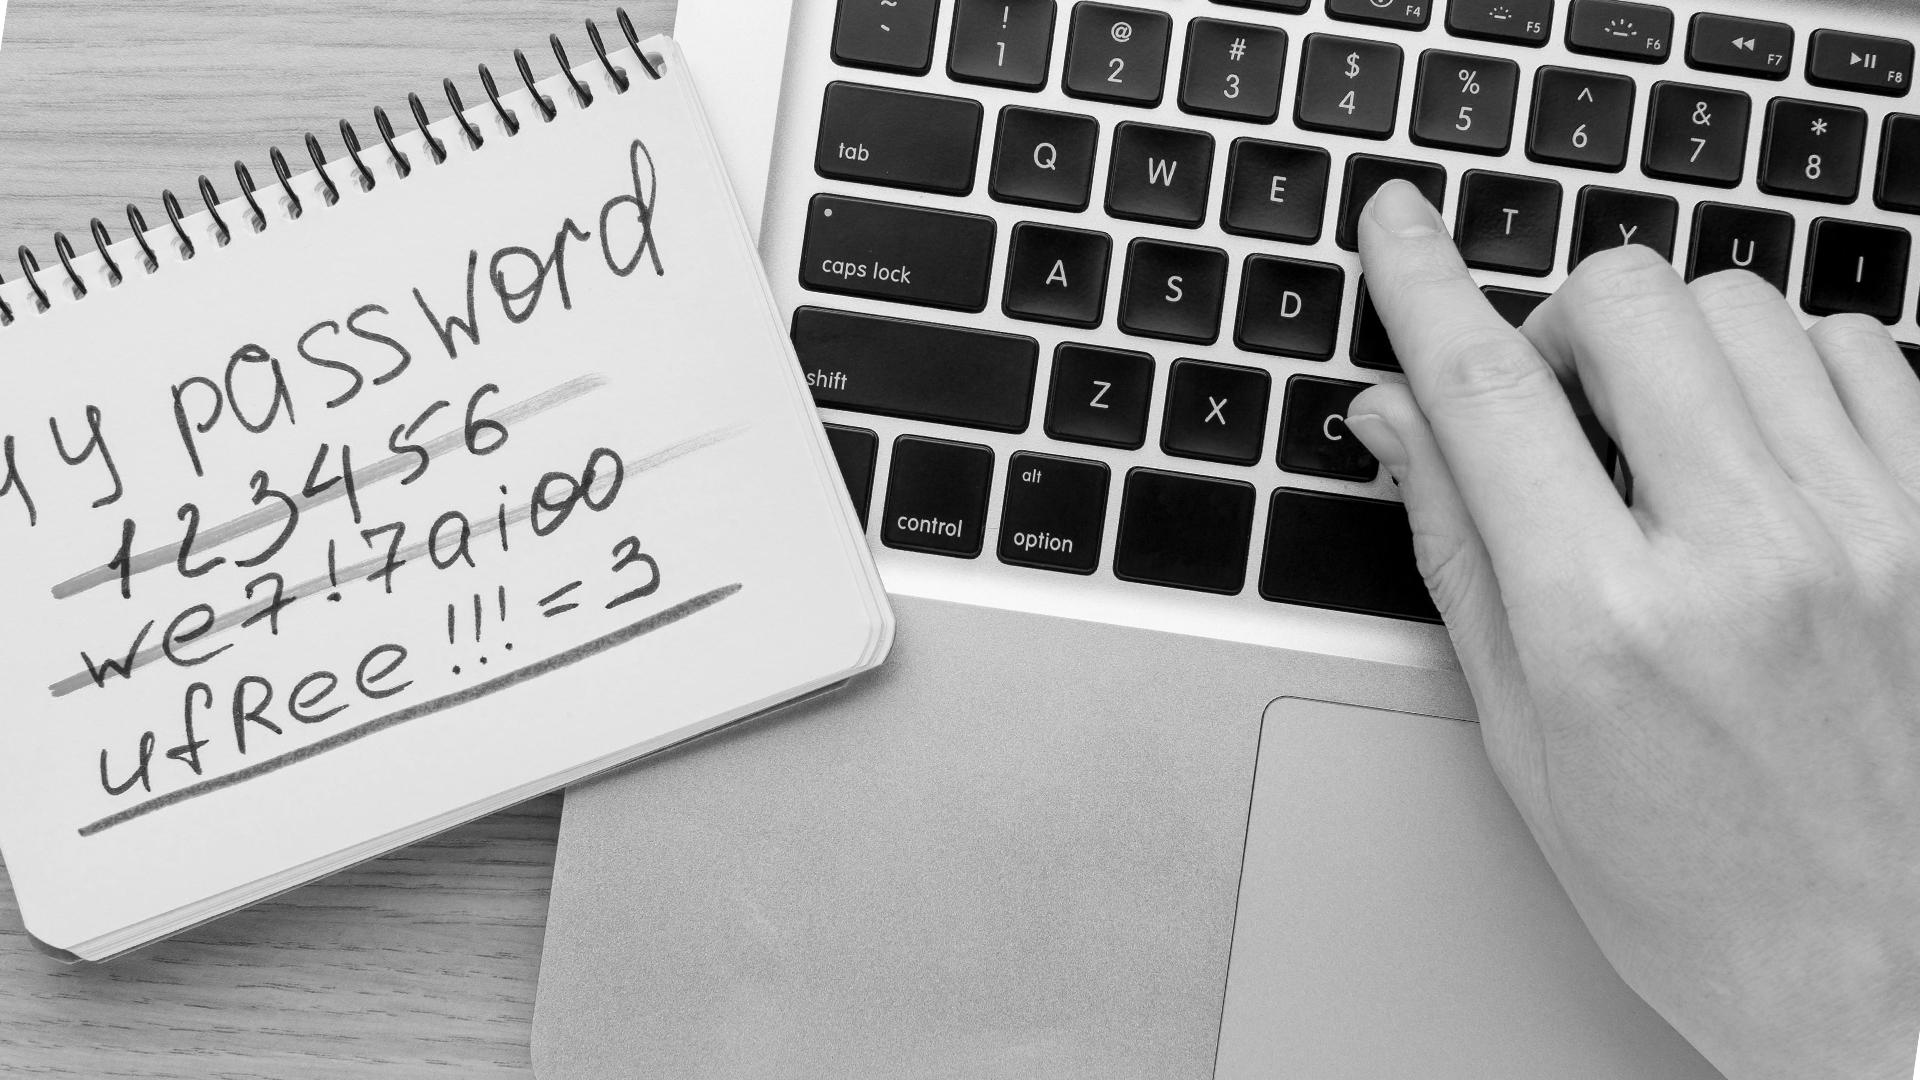 my password
123456
we7!7aioo
ufRee!!!=3
~ `
! 1
@ 2
# 3
$ 4
% 5
^ 6
& 7
* 8
F4
F5
F6
F7
F8
tab
Q W E T Y U I
caps lock
A S D
shift
Z X C
control
alt
option